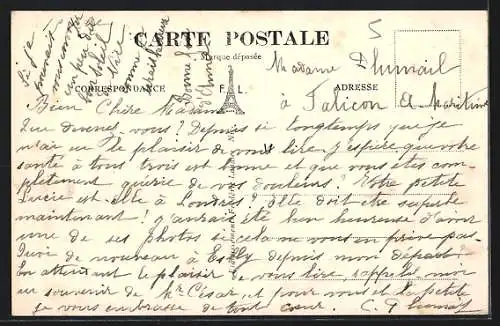 CARTE POSTALE
Marque déposée
CORRESPONDANCE
ADRESSE
F. L.
5
Madame Plumail
à Falicon A. Maritime
Si je
pouvais
un peu de
bon soleil
Bien Chère Madame
Que devenez-vous? Depuis si longtemps que je
n'ai eu le plaisir de vous lire. J'espère que votre
santé à tous trois est bonne et que vous êtes com-
plètement guérie de vos douleurs? Votre petite
est-elle à Londres? elle doit être superbe
maintenant! j'aurais été bien heureuse d'avoir
une de ses photos si cela ne vous en prive pas.
de nouveau à depuis mon départ.
En attendant le plaisir de vous lire, rappelez moi
au souvenir de Mr César, et pour vous et la petite
je vous embrasse de tout cœur. C.